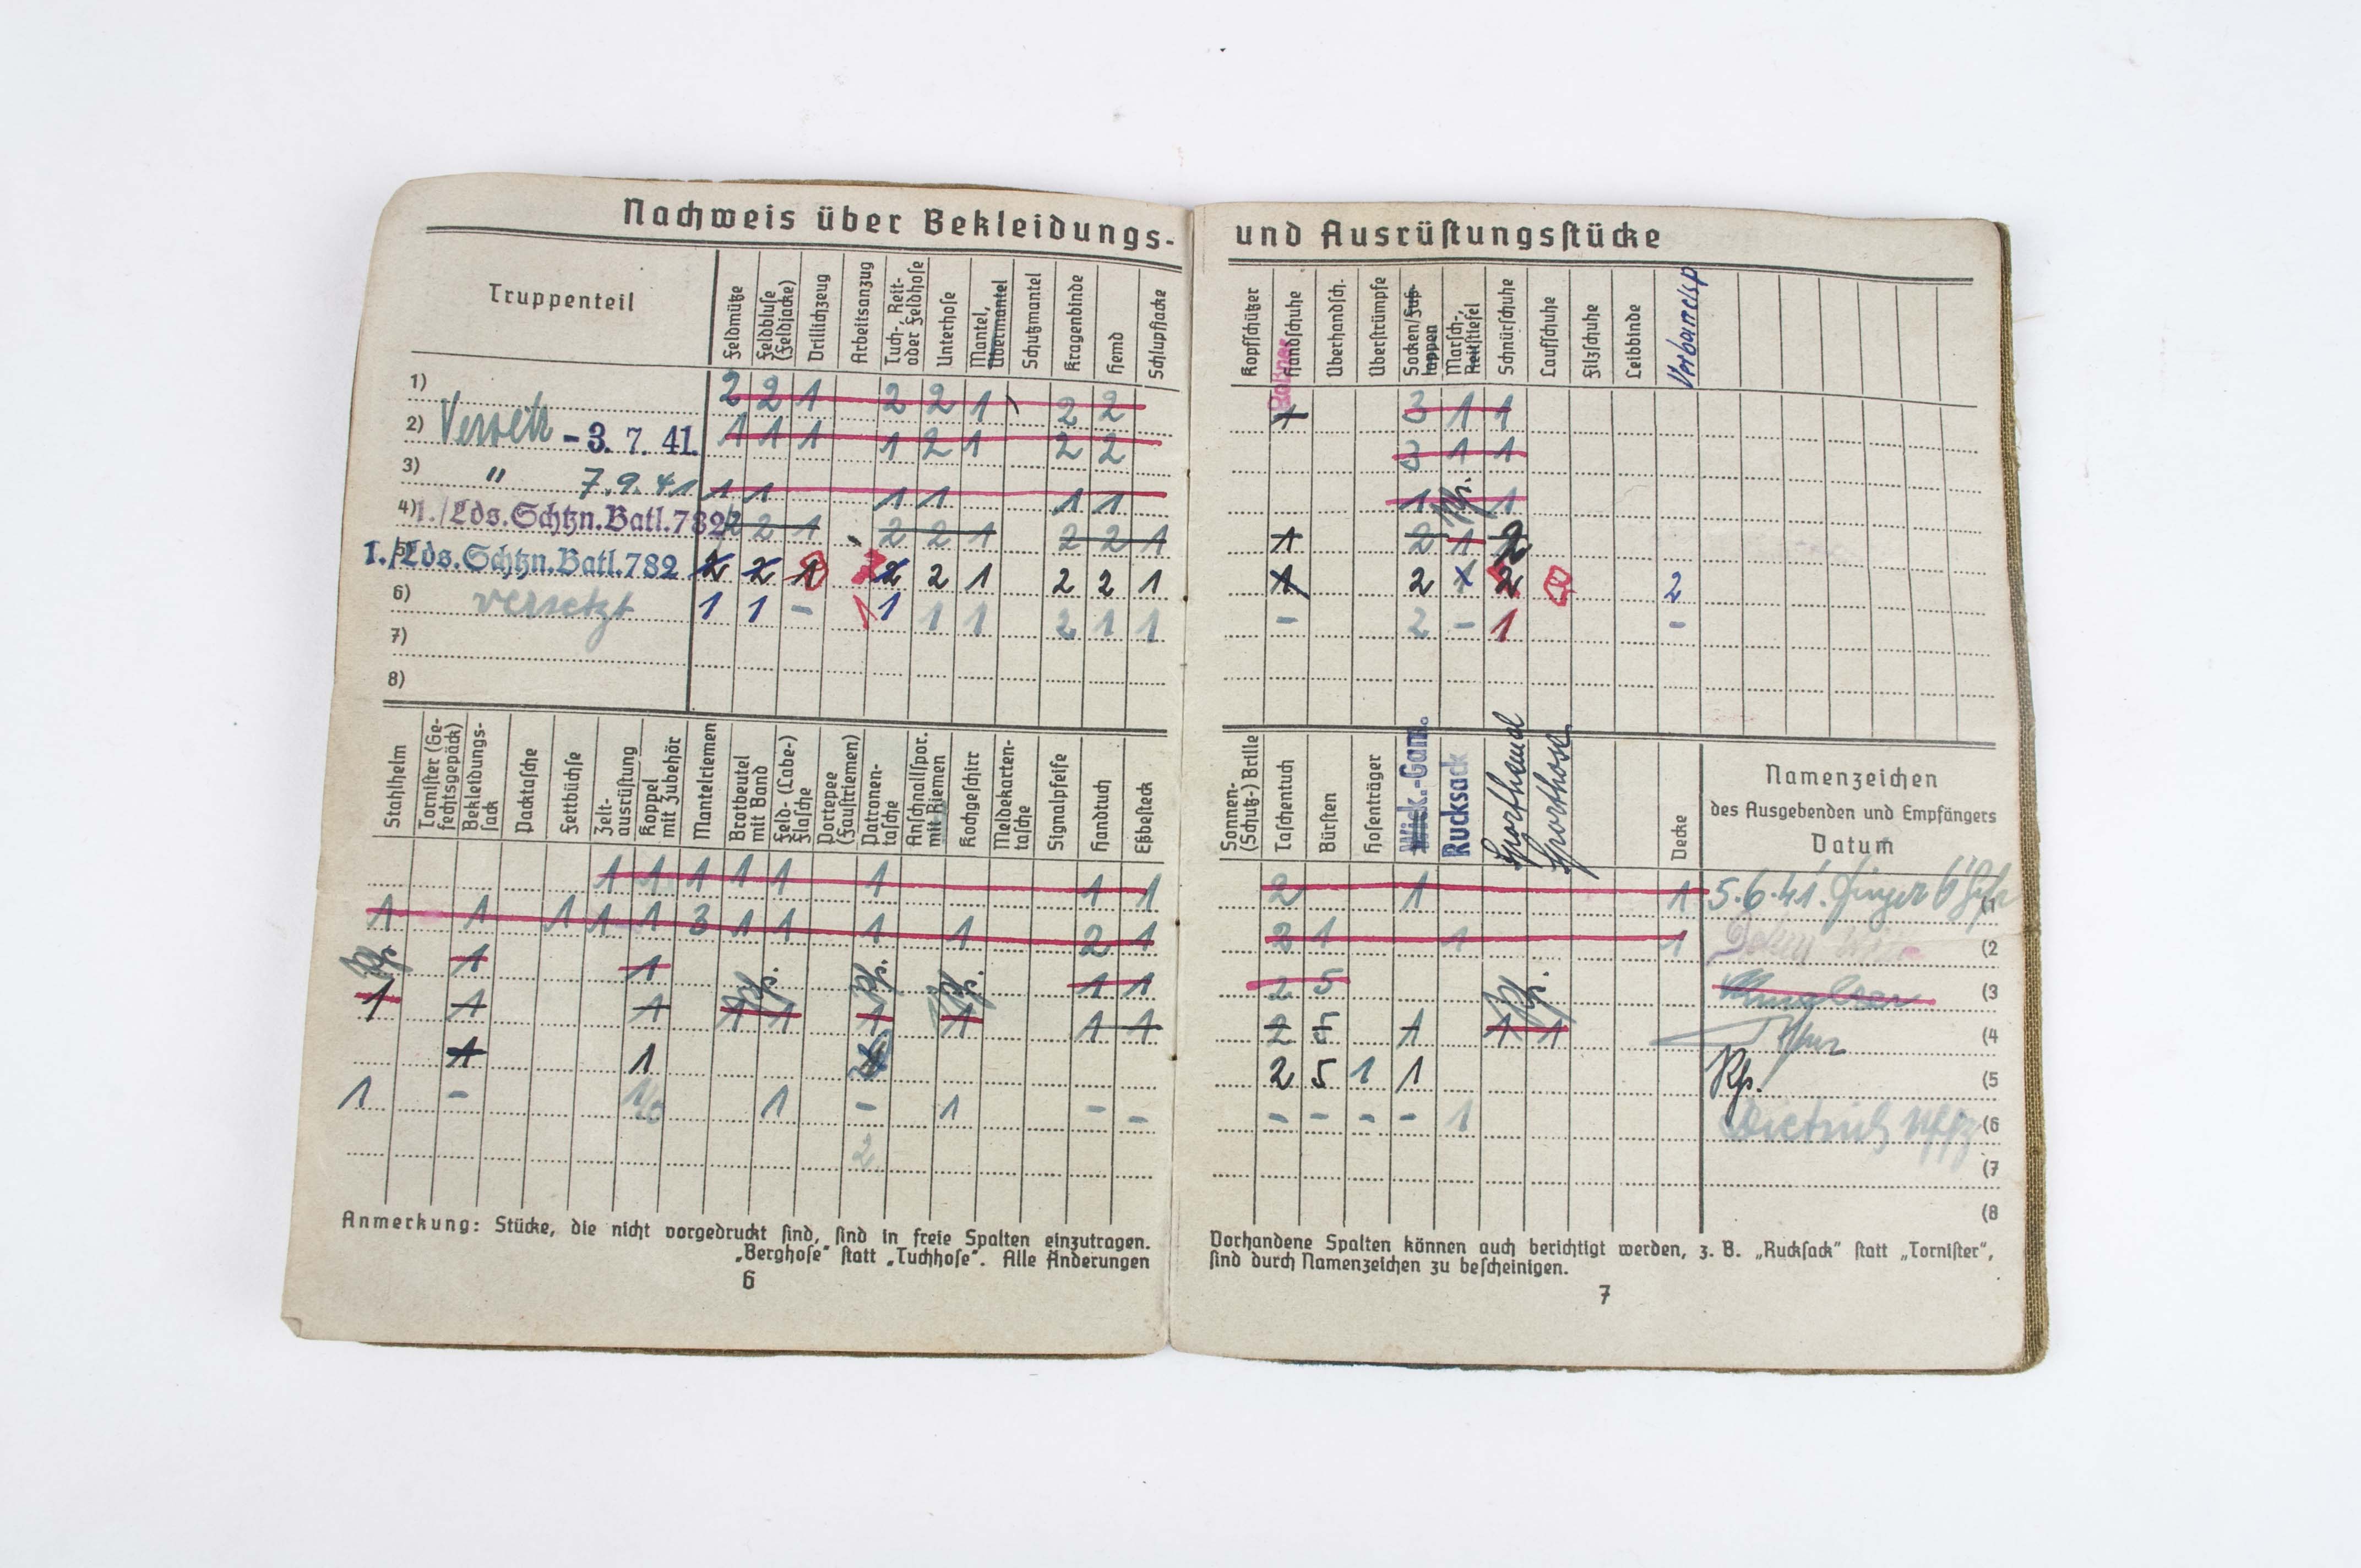 Nachweis über Bekleidungs- und Ausrüstungsstücke
Truppenteil
Feldmütze
Feldbluse (Feldjacke)
Drillichzeug
Arbeitsanzug
Tuch-, Reit- oder Feldhose
Unterhose
Mantel, Übermantel
Schutzmantel
Kragenbinde
Hemd
Schlupfjacke
Kopfschützer
Handschuhe
Überhandsch.
Überstrümpfe
Socken/Fußlappen
Marsch-, Reitstiefel
Schnürschuhe
Laufschuhe
Filzschuhe
Leibbinde
1) 2 2 1 2 2 1 2 2 3 1 1
2) - 3. 7. 41. 1 1 1 1 2 1 2 2 3 1 1
3) " 7.9.41 1 1 1 1 1 1 1 1
4) 1./Lds.Schtzn.Batl.782 2 2 1 2 2 1 2 2 1 1 2 1 2
5) 1./Lds.Schtzn.Batl.782 2 2 1 2 2 1 2 2 1 1 2 2 2
6) versetzt 1 1 - 1 1 1 1 2 1 1 - 2 - 1 -
7)
8)
Stahlhelm
Tornister (Gefechtsgepäck)
Bekleidungssack
Packtasche
Fettbüchse
Zeltausrüstung
Koppel mit Zubehör
Mantelriemen
Brotbeutel mit Band
Feld- (Labe-) Flasche
Portepee (Faustriemen)
Patronentasche
Anschnallspor. mit Riemen
Kochgeschirr
Meldekartentasche
Signalpfeife
Handtuch
Eßbesteck
Sonnen- (Schutz-) Brille
Taschentuch
Bürsten
Hosenträger
Wick.-Gam.
Rucksack
Sporthemd
Sporthose
Decke
Namenzeichen
des Ausgebenden und Empfängers
Datum
1 1 1 1 1 1 1 1 2 1 1 5.6.41. (1
1 1 1 1 1 3 1 1 1 1 2 1 2 1 1 1 (2
1 1 1 1 2 5 (3
1 1 1 1 1 1 1 1 1 2 5 1 1 1 (4
1 1 2 5 1 1 (5
1 - 1 - 1 - - - - - - 1 Dietrich Uffz (6
2 (7
(8
Anmerkung: Stücke, die nicht vorgedruckt sind, sind in freie Spalten einzutragen.
„Berghose" statt „Tuchhose". Alle Änderungen
6
Vorhandene Spalten können auch berichtigt werden, z. B. „Rucksack" statt „Tornister",
sind durch Namenzeichen zu bescheinigen.
7